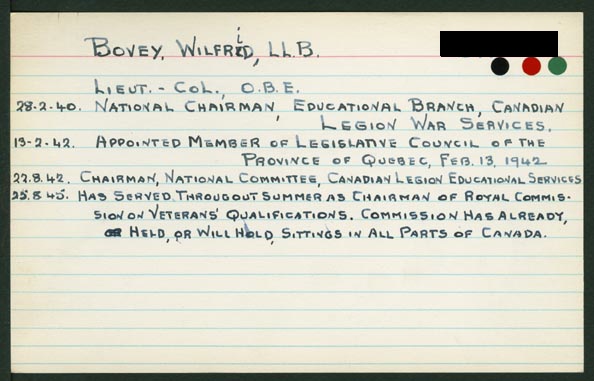 BOVEY, WILFRID, LL.B.
LIEUT. - COL., O.B.E.
28-2-40. NATIONAL CHAIRMAN, EDUCATIONAL BRANCH, CANADIAN
LEGION WAR SERVICES.
13-2-42. APPOINTED MEMBER OF LEGISLATIVE COUNCIL OF THE
PROVINCE OF QUEBEC, FEB. 13, 1942
22.8.42. CHAIRMAN, NATIONAL COMMITTEE, CANADIAN LEGION EDUCATIONAL SERVICES
25.8.45. HAS SERVED THROUGOUT SUMMER AS CHAIRMAN OF ROYAL COMMIS-
SION ON VETERANS' QUALIFICATIONS. COMMISSION HAS ALREADY,
HELD, OR WILL HOLD, SITTINGS IN ALL PARTS OF CANADA.